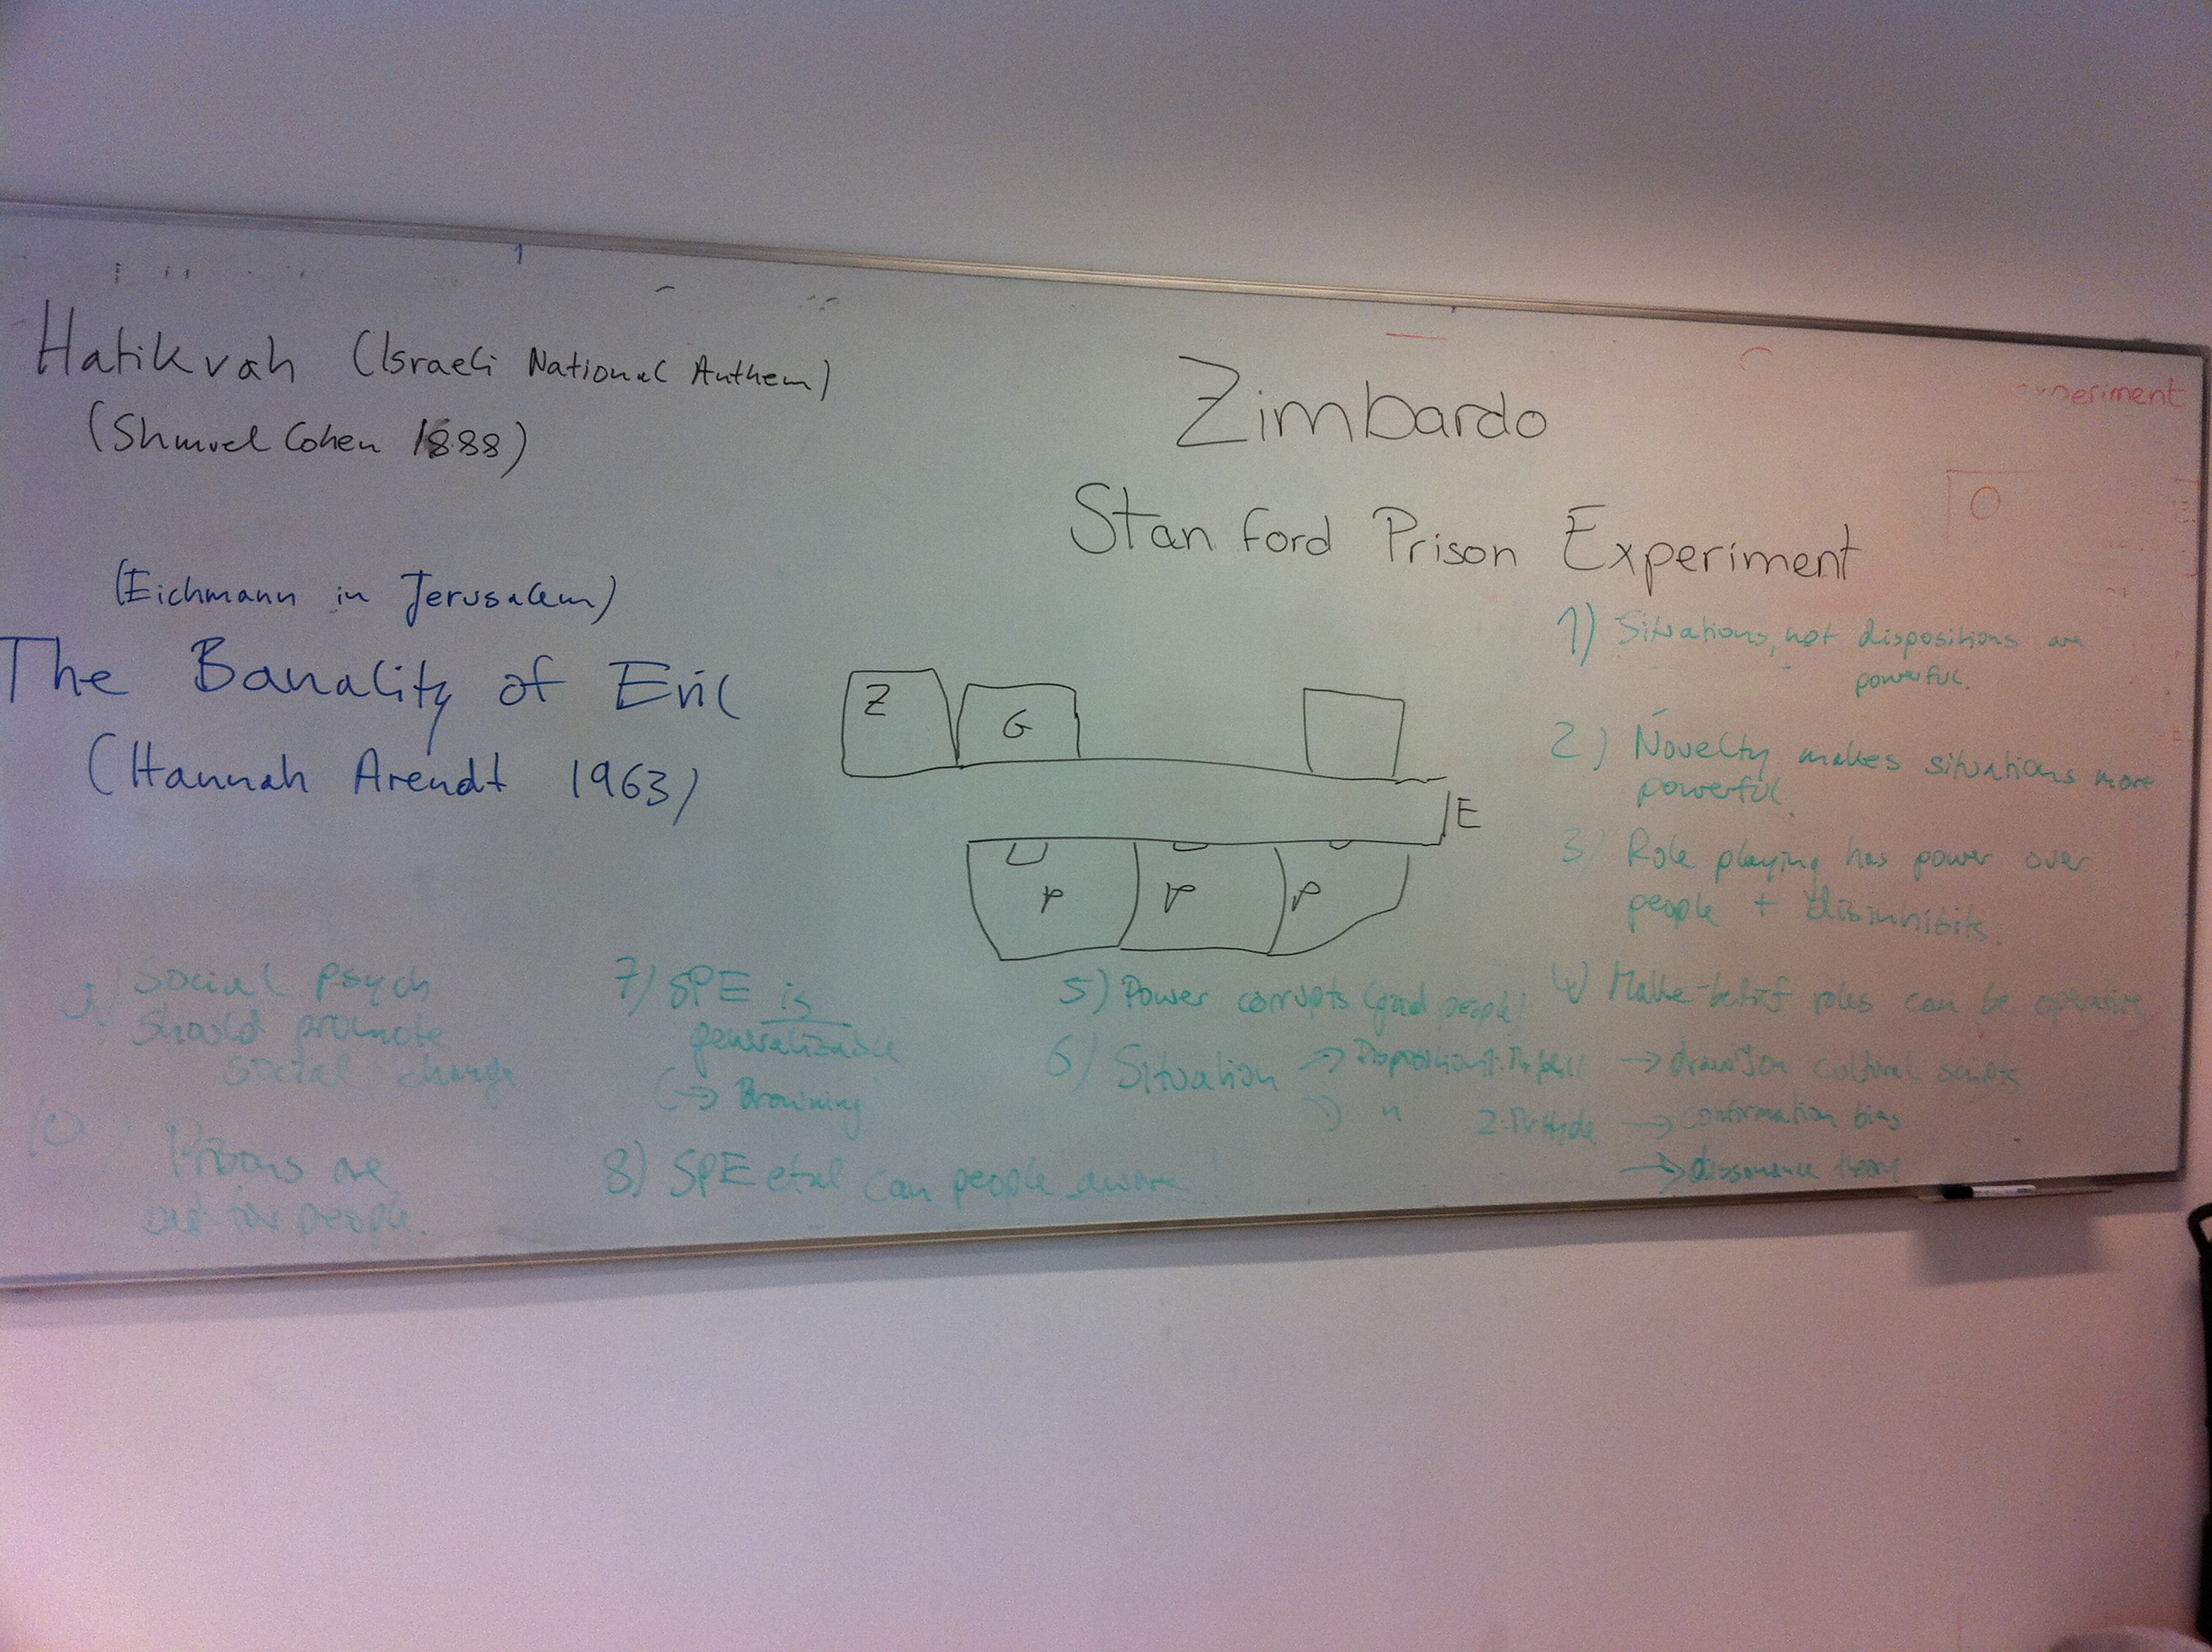 Hatikvah (Israeli National Anthem)
(Shmuel Cohen 1888)
(Eichmann in Jerusalem)
The Banality of Evil
(Hannah Arendt 1963)
Zimbardo
Stanford Prison Experiment
Z
G
E
P
P
P
1) Situations, not dispositions are
powerful.
2) Novelty makes situations more
powerful.
3) Role playing has power over
people + disinhibits.
4) Make-belief roles can be operative
5) Power corrupts (good people)
6) Situation → Disposition 1: Dr Jekyll → draws on cultural scripts
→ " 2: Dr Hyde → confirmation bias
→ dissonance theory
7) SPE is
generalizable
(→ Browning
8) SPE et al can people aware
9) Social psych
should promote
social change
10) Prisons are
bad for people.
O